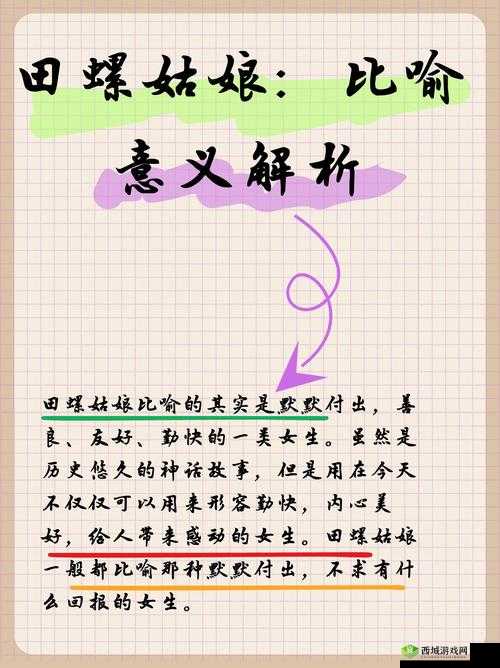 田螺姑娘：比喻
意义解析
田螺姑娘比喻的其实是默默付出，善
良、友好、勤快的一类女生。虽然是
历史悠久的神话故事，但是用在今天
不仅仅可以用来形容勤快，内心美
好，给人带来感动的女生。田螺姑娘
一般都比喻那种默默付出，不求有什
么回报的女生。
西城游戏网